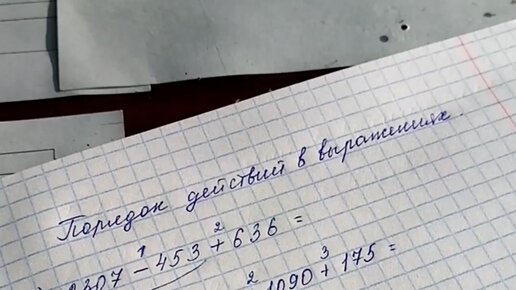 Порядок действий в выражениях.
1 2
2307 - 453 + 636 =
2 3
1090 + 175 =